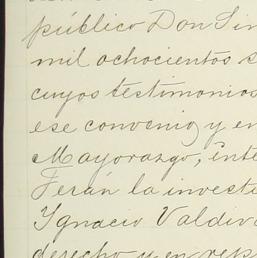 público Don Sin
mil ochocientos s
cuyos testimonios
ese convenio y en
Mayorazgo, inte
Ferán la investi
Ygnacio Valdiv
derecho y en rep